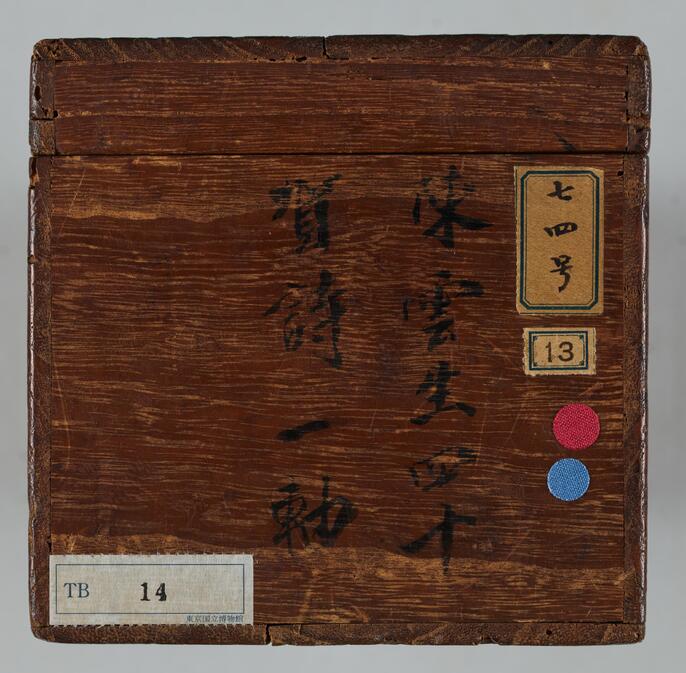 陳雲生四十
賀詩一軸
七四号
13
TB 14
東京国立博物館